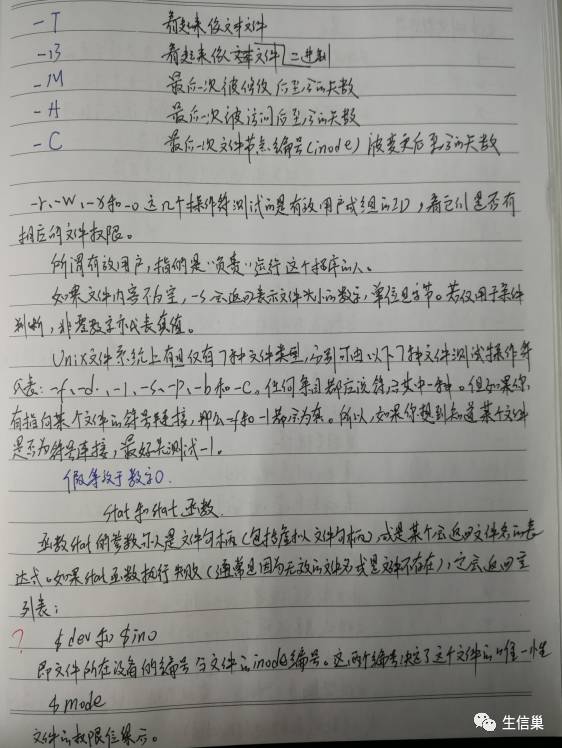 -T 看起来像文本文件
-B 看起来像文本文件 二进制
-M 最后一次被修改后至今的天数
-A 最后一次被访问后至今的天数
-C 最后一次文件节点编号(inode)被变更后至今的天数
-r、-w、-x和-o这几个操作符测试的是有效用户或组的ID,看它们是否有
相应的文件权限。
所谓有效用户,指的是“负责”运行这个程序的人。
如果文件内容不为空,-s会返回表示文件大小的数字,单位是字节。若仅用于条件
判断,非零数字亦代表真值。
Unix文件系统上有且仅有7种文件类型,分别可由以下7种文件测试操作符
代表:-f、-d、-l、-s、-p、-b和-c。任何条目都应该符合其中一种。但如果你
有指向某个文件的符号连接,那么-f和-l都示为真。所以,如果你想到知道某个文件
是否为符号连接,最好先测试-l。
假等效于数字0.
stat和lstat函数
函数stat的参数可以是文件句柄(包括虚拟文件句柄)或是某个会返回文件名的表
达式。如果stat函数执行失败(通常是因为无效的文件名或是文件不存在),它会返回空
列表:
? $dev和$ino
即文件所在设备的编号与文件的inode编号。这两个编号决定了这个文件的唯一性
$mode
文件的权限位集示。
生信巢